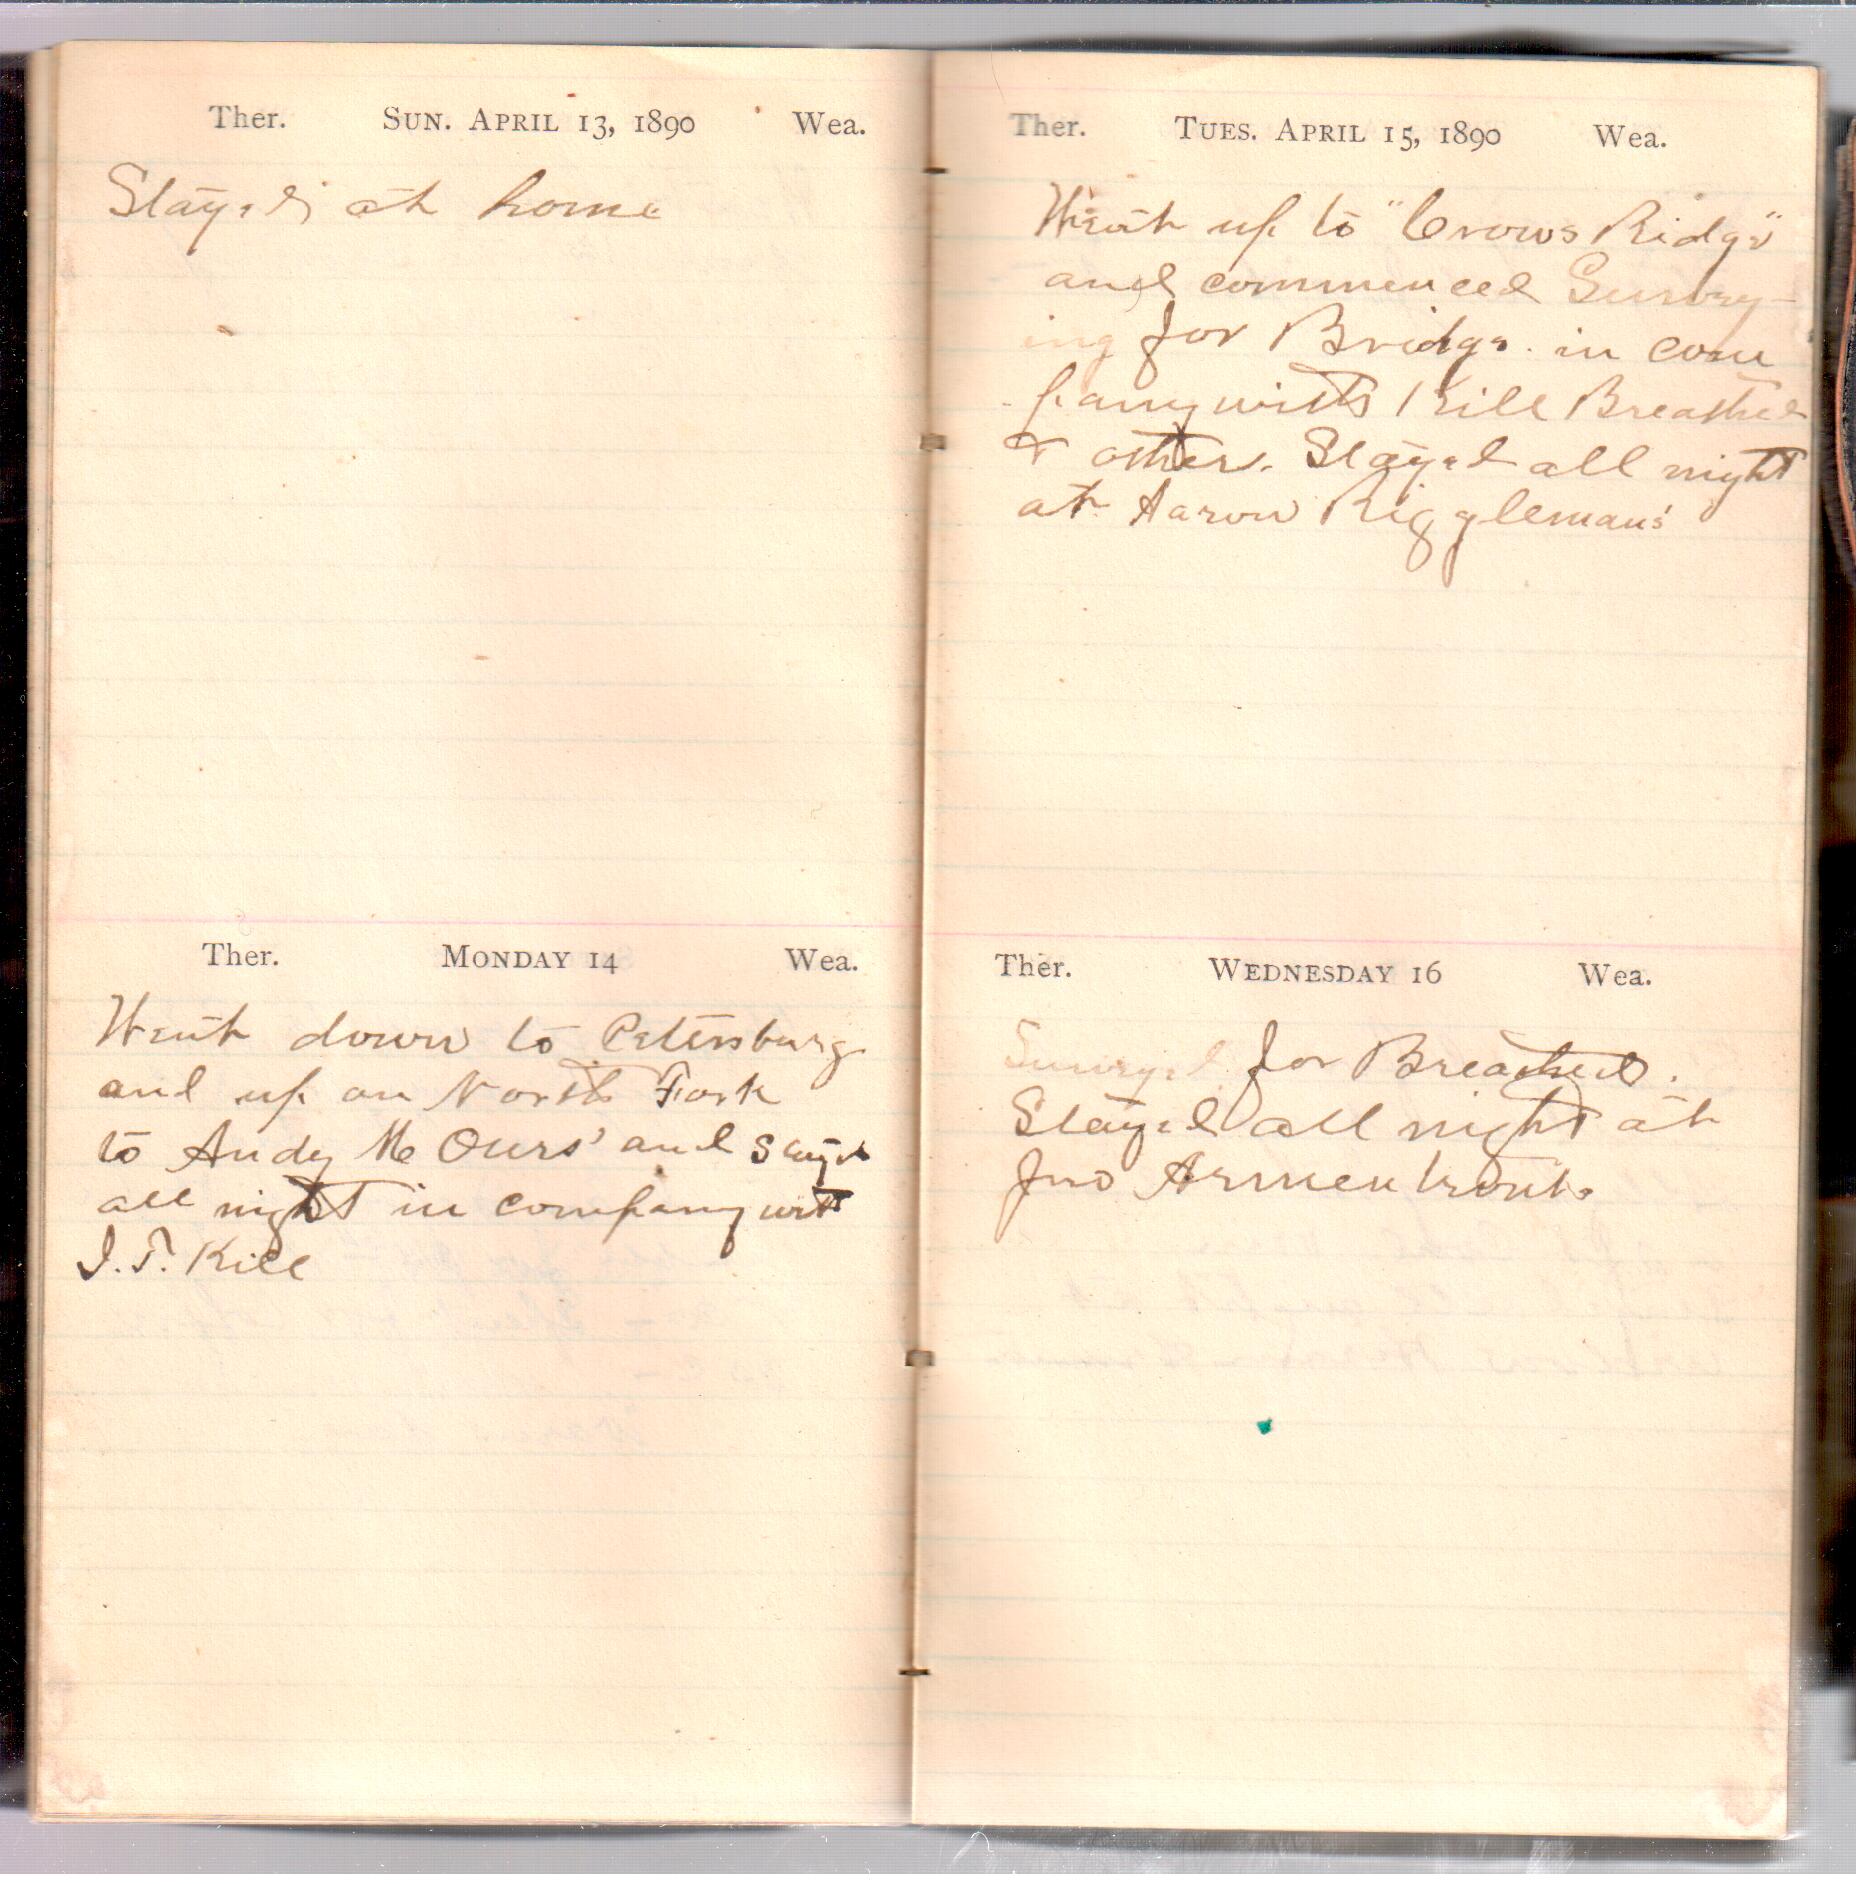 Ther. SUN. APRIL 13, 1890 Wea.
Stayed at home
Ther. MONDAY 14 Wea.
Went down to Petersburg
and up on North Fork
to Andy Mc Ours' and stayed
all night in company with
I. T. Kile
Ther. TUES. APRIL 15, 1890 Wea.
Went up to "Crows Ridge"
and commenced Survey-
ing for Bridge. in com
-pany with Kile Breathed
& other. Stayed all night
at Aaron Riggleman's
Ther. WEDNESDAY 16 Wea.
Surveyed for Breathed.
Stayed all night at
Jno Armentrouts